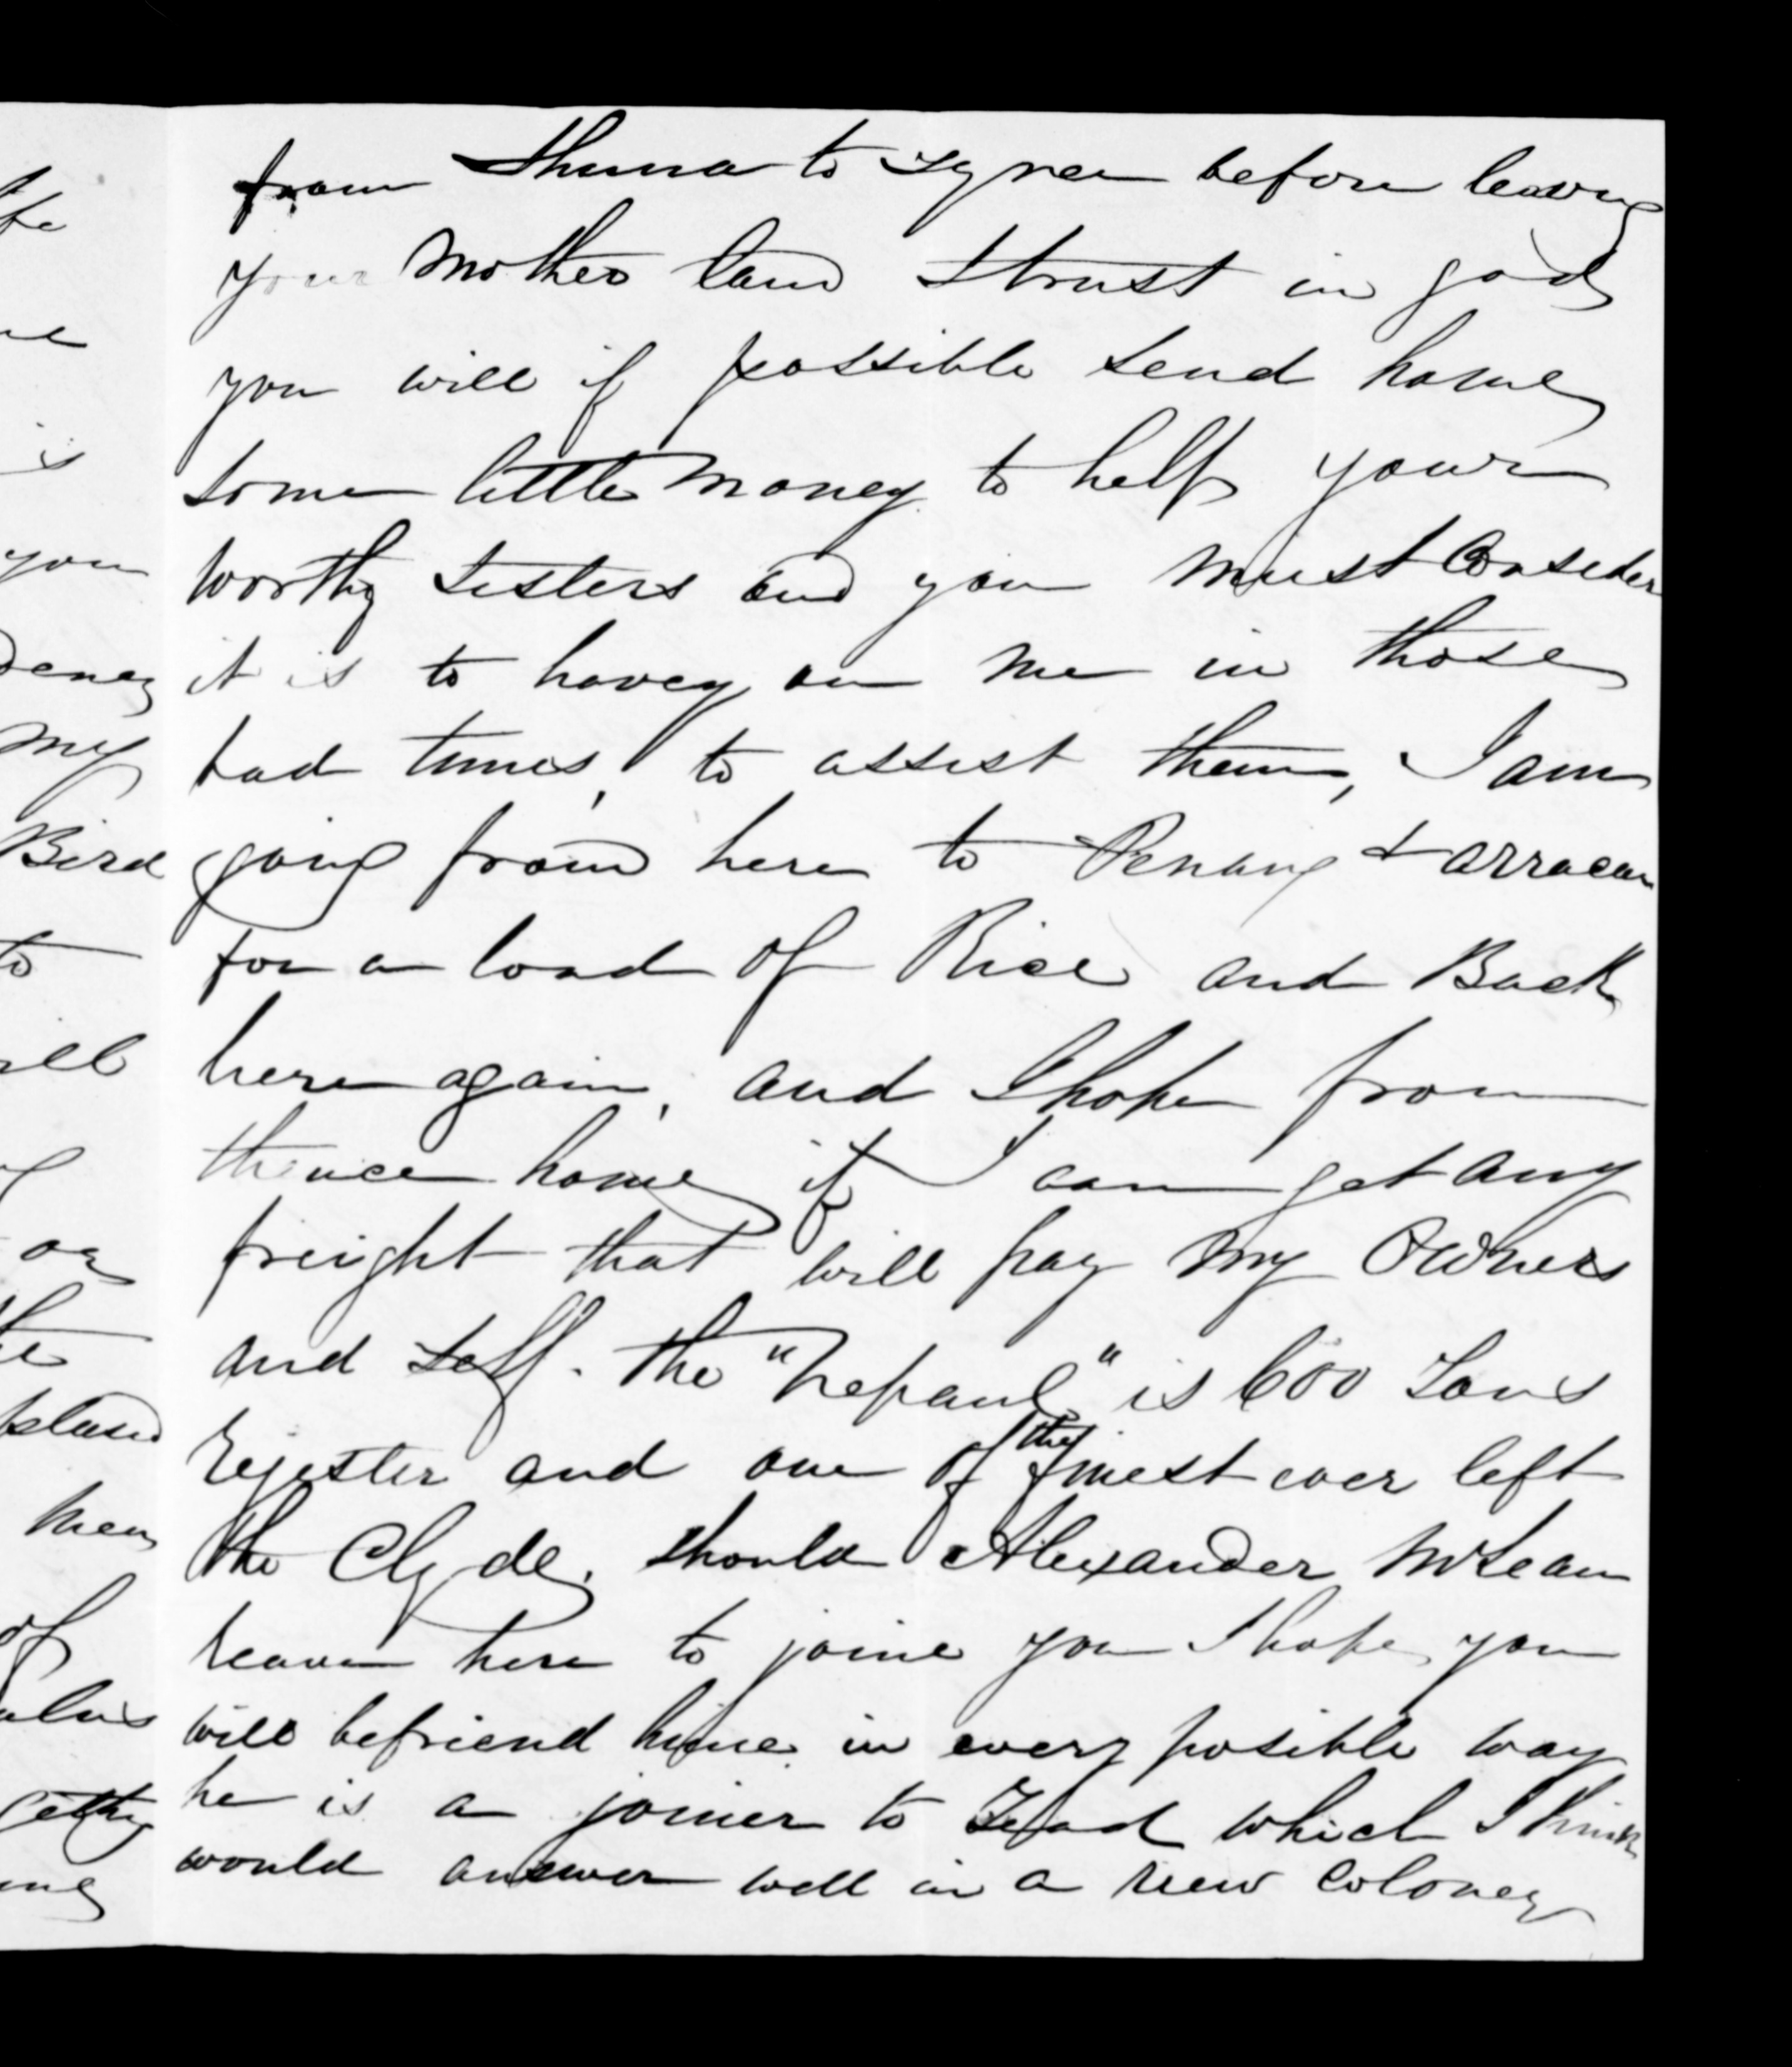 from Shuna to Tyree before leaving
your Mother land I trust in god
you will if possible send home
some little money to help your
worthy sisters and you must Consider
it is to havey on me in those
bad times, to assist them, I am
going from here to Penang & arracan
for a load of Rice and Back
here again, and I hope from
thence home if I can get any
freight that will pay my Owners
and self. the "Nepaul" is 600 Tons
rejester and one of the finest ever left
the Clyde. should Alexander McLean
leave here to joine you I hope you
will befriend hime in every posible way
he is a joiner to Trad which I think
would answer well in a new coloney
is
you
my
Bird
to
or
the
men
of